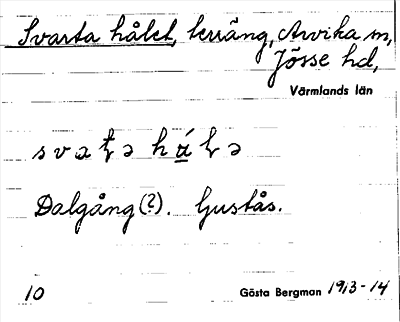 Svarta hålet, terräng, Arvika sn,
Jösse hd,
Värmlands län
Dalgång (?). Gustås.
10 Gösta Bergman 1913-14